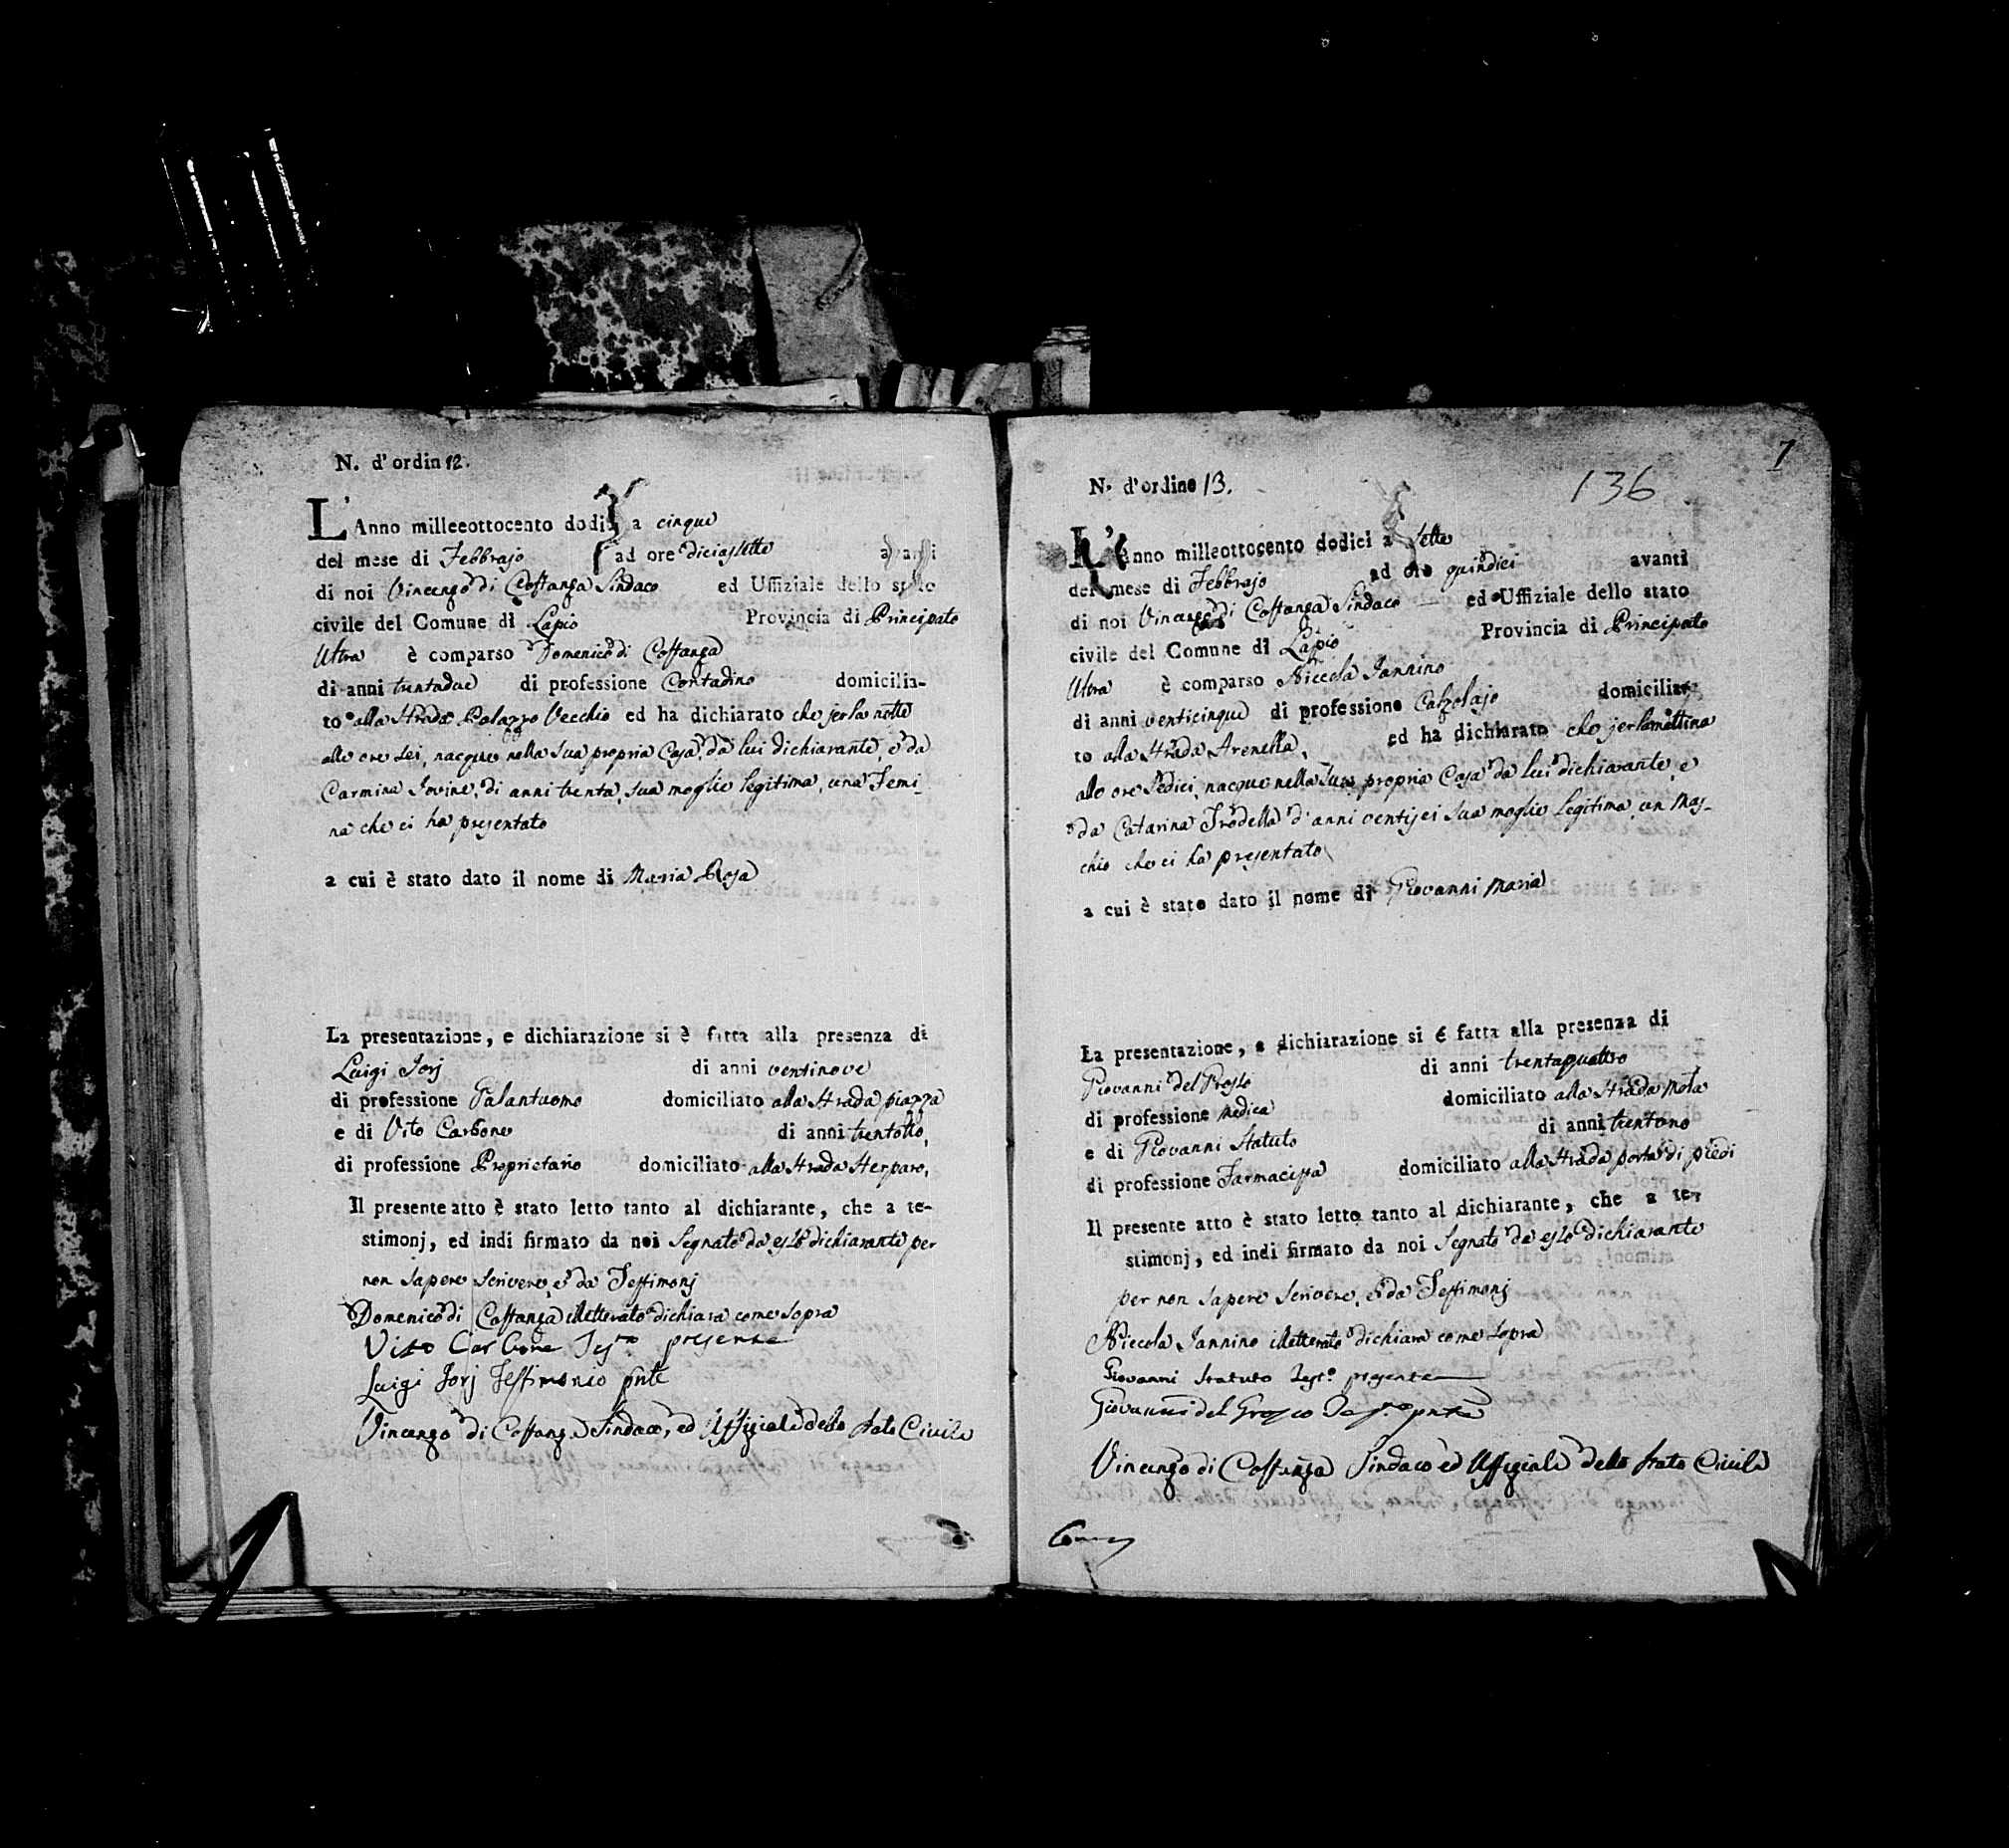 N. d'ordin 12.
L'Anno milleeottocento dodici a cinque
del mese di Febbrajo ad ore diciasette avanti
di noi Vincenzo di Costanza Sindaco ed Uffiziale dello stato
civile del Comune di Lapio Provincia di Principato
Ultra è comparso Domenico di Costanza
di anni trentadue di professione Contadino domicilia-
to alla Strada Palazzo Vecchio ed ha dichiarato che jerla notte
alle ore sei, nacque nella sua propria Casa, da lui dichiarante, e da
Carmina Imvine, di anni trenta, sua moglie legitima, una Femi_
na che ci ha presentato
a cui è stato dato il nome di Maria Rosa
La presentazione, e dichiarazione si è fatta alla presenza di
Luigi Jorj di anni ventinove
di professione Galantuomo domiciliato alla Strada piazza
e di Vito Carbone di anni trentotto,
di professione Proprietario domiciliato alla Strada
Il presente atto è stato letto tanto al dichiarante, che a te-
stimonj, ed indi firmato da noi Segnato da esso dichiarante per
non sapere scrivere, e da Testimonj
Domenico di Costanza illetterato dichiara come sopra
Vito Carbone Tes.mo presente
Luigi Jorj Testimonio pnte
Vincenzo di Costanza Sindaco, ed Uffiziale dello Stato Civile
7
136
N. d'ordine 13.
L'Anno milleottocento dodici a sette
del mese di Febbrajo ad ore quindici avanti
di noi Vincenzo di Costanza Sindaco ed Uffiziale dello stato
civile del Comune di Lapio Provincia di Principato
Ultra è comparso Niccola Jannino
di anni venticinque di professione Calzolajo domicilia-
to alla Strada Arenella, ed ha dichiarato che jerlamattina
alle ore Sedici, nacque nella sua propria Casa da lui dichiarante, e
da Catarina Trodella d'anni ventisei sua moglie legitima, un Mas_
chio che ci ha presentato
a cui è stato dato il nome di Giovanni Maria
La presentazione, e dichiarazione si è fatta alla presenza di
Giovanni del Grosso di anni trentaquattro
di professione Medica domiciliato alla Strada Mola
e di Giovanni Statuto di anni trentuno
di professione Farmacista domiciliato alla Strada porta di piedi
Il presente atto è stato letto tanto al dichiarante, che a te-
stimonj, ed indi firmato da noi Segnato da esso dichiarante
per non sapere scrivere, e da Testimonj
Niccola Jannino illetterato dichiara come sopra
Giovanni Statuto Test.o presente
Giovanni del Grosso Tes.o pnte
Vincenzo di Costanza Sindaco ed Uffiziale dello Stato Civile